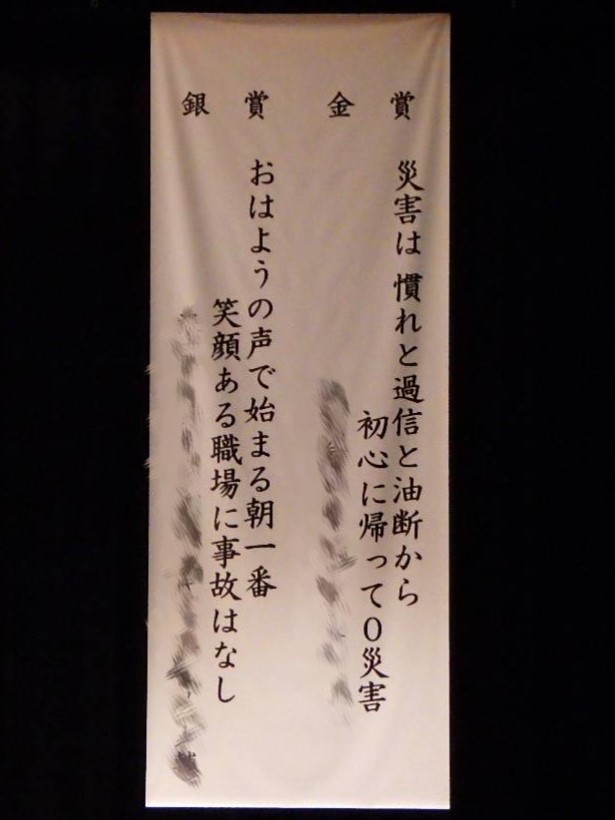 金賞
災害は 慣れと過信と油断から
初心に帰って0災害
銀賞
おはようの声で始まる朝一番
笑顔ある職場に事故はなし